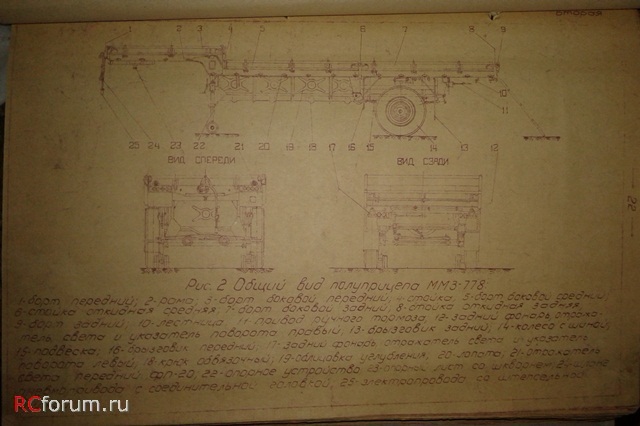 1 2 3 4 5 6 7 8 9
10
11
25 24 23 22 21 20 19 18 17 16 15 14 13 12
ВИД СПЕРЕДИ ВИД СЗАДИ
22
Рис. 2 Общий вид полуприцепа ММЗ-778
1-борт передний; 2-рама; 3-борт боковой, передний; 4-стойка; 5-борт боковой средний
6-стойка откидная средняя 7-борт боковой задний; 8-стойка откидная задняя
9-борт задний; 10-лестница; 11 привод ручного тормоза, 12-задний фонарь, отража-
тель света и указатель поворота правый; 13-брызговик задний; 14-колесо с шиной;
15-подвеска; 16-брызговик передний; 17-задний фонарь отражатель света и указатель
поворота левый; 18-крюк обвязочный; 19-облицовка углубления, 20 лопата; 21-отражатель
света передний, ФП-20; 22-опорное устройство 23-опорный лист со шкворнем 24
с соединительной головкой; 25-электропроводка со штепсельной
RCforum.ru